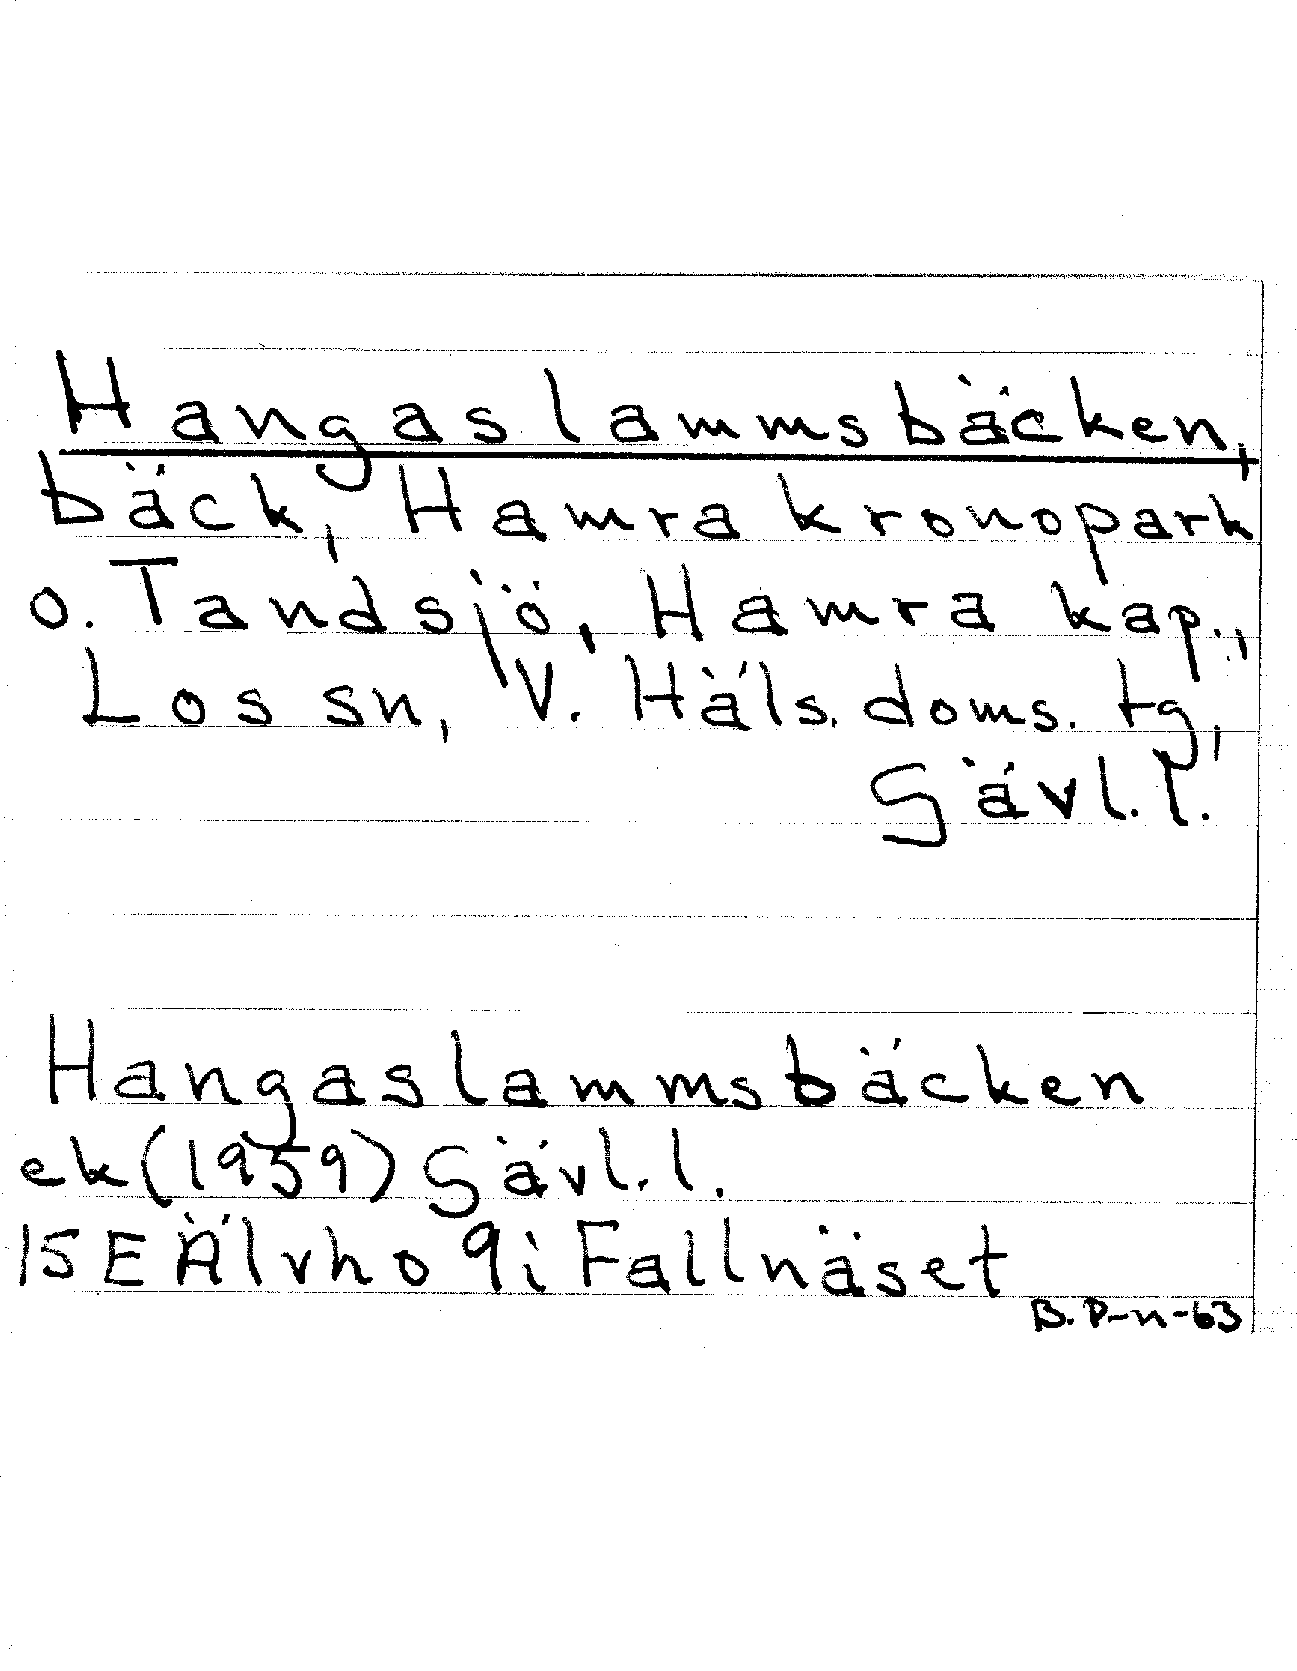 Hangaslammsbäcken,
bäck, Hamra kronopark
o. Tandsjö, Hamra kap.,
Los sn, V. Häls. doms. tg,
Gävl. l.
Hangaslammsbäcken
ek (1959) Gävl. l.
15E Älvho 9i Fallnäset
B. P-n-63